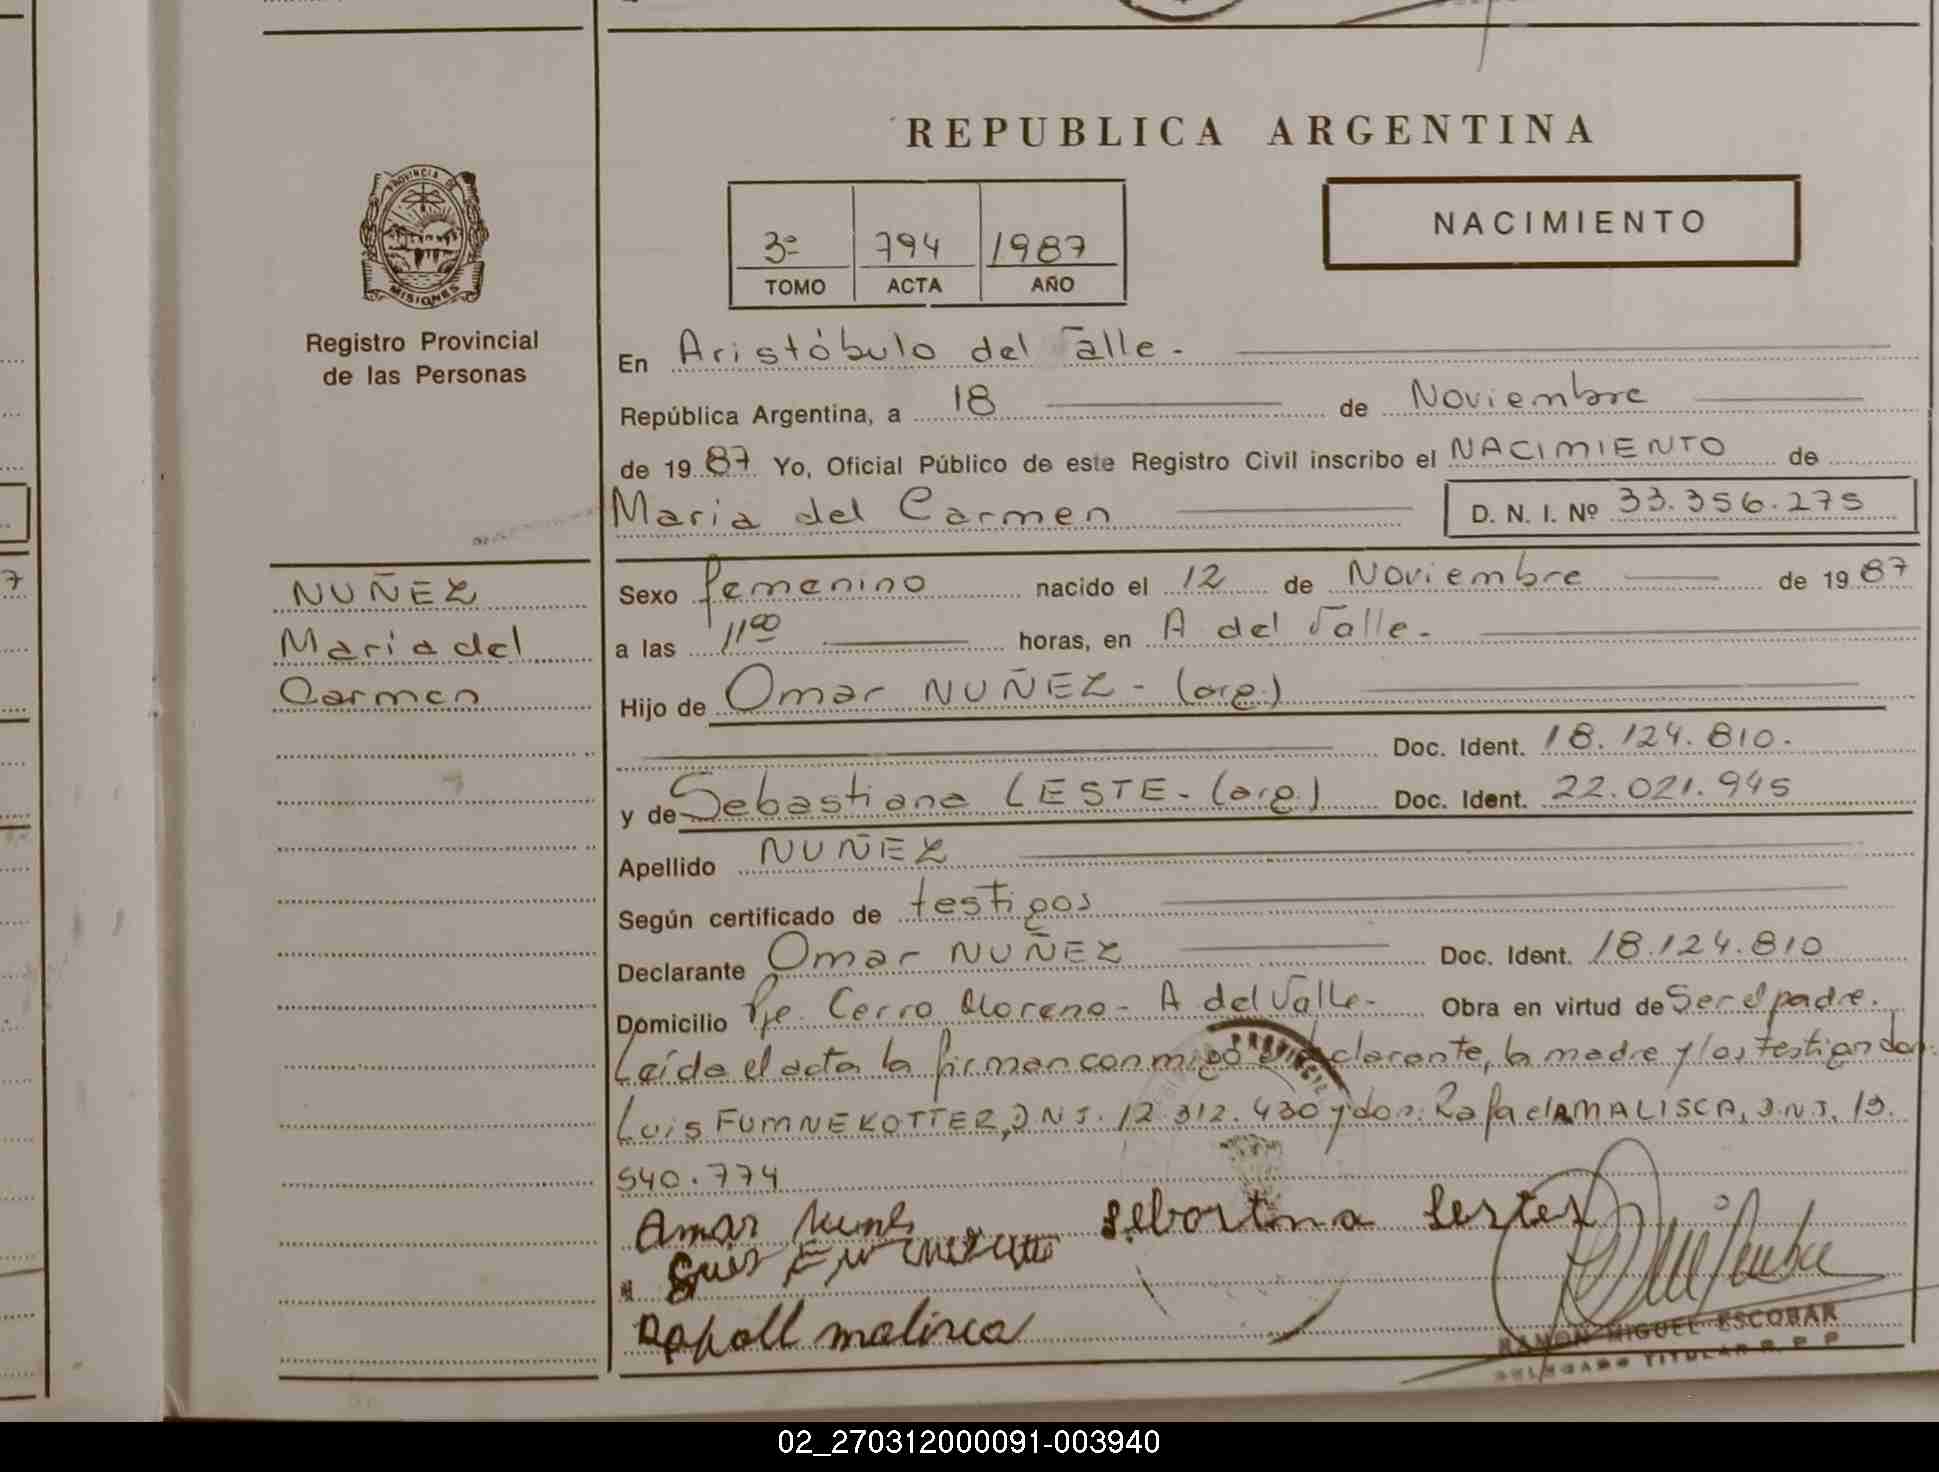 REPUBLICA ARGENTINA
NACIMIENTO
3º 794 1987
TOMO ACTA AÑO
PROVINCIA DE
MISIONES
Registro Provincial
de las Personas
En Aristóbulo del Valle.
República Argentina, a 18 de Noviembre
de 19 87 Yo, Oficial Público de este Registro Civil inscribo el NACIMIENTO de
Maria del Carmen D. N. I. Nº 33.356.275
NUÑEZ
María del
Carmen
Sexo femenino nacido el 12 de Noviembre de 19 87
a las 11⁰⁰ horas, en A del Valle.
Hijo de Omar NUÑEZ - (arg.)
Doc. Ident. 18.124.810.
y de Sebastiana LESTE - (arg.) Doc. Ident. 22.021.945
Apellido NUÑEZ
Según certificado de testigos
Declarante Omar NUÑEZ Doc. Ident. 18.124.810
Domicilio Pje. Cerro Moreno - A del Valle - Obra en virtud de Ser el padre.
Leída el acta la firman conmigo el declarante, la madre y los testigos don
Luis FUMNEKOTTER, D.N.I. 12.312.430 y don Rafael AMALISCA, D.N.I. 13.
540.774
RAMON MIGUEL ESCOBAR
DELEGADO TITULAR R. P. P
02_270312000091-003940